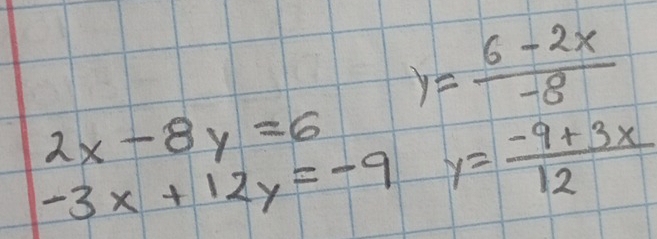 2x - 8y = 6
-3x + 12y = -9
y = \frac{6 - 2x}{-8}
y = \frac{-9 + 3x}{12}